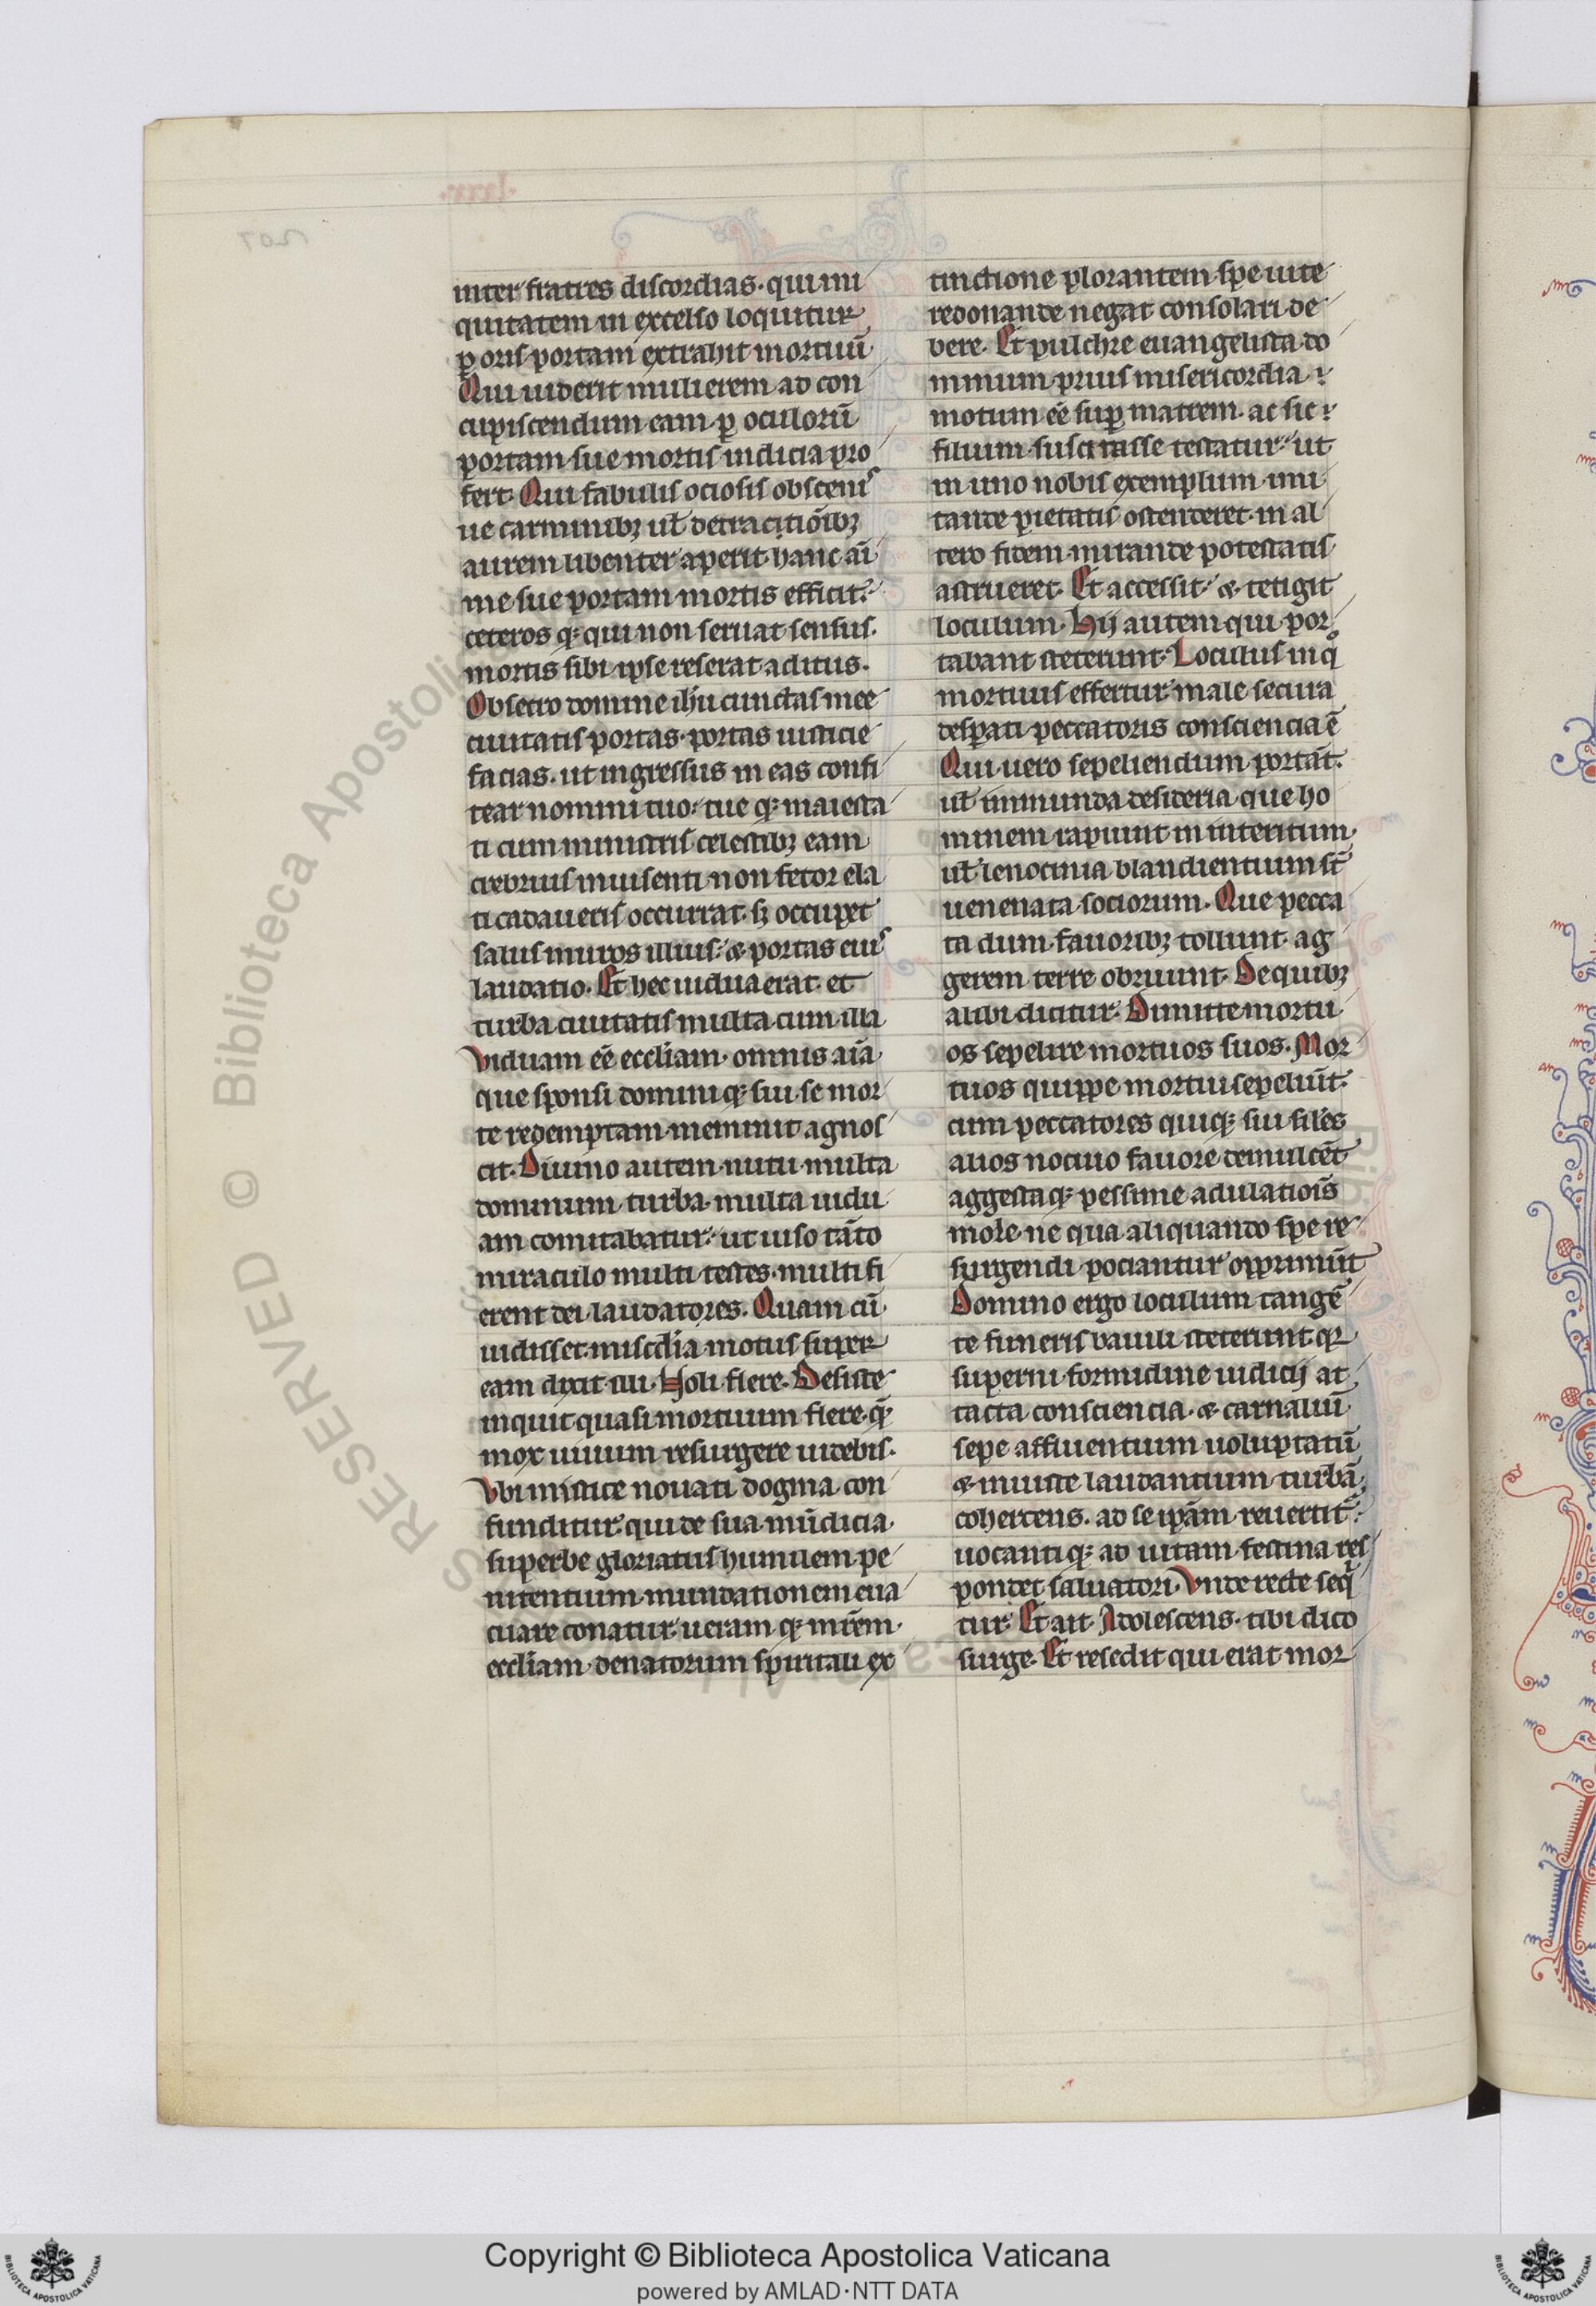 inter fratres discordias. qui ini
quitatem in excelso loquitur
ꝑ oris portam extrahit mortuū
Qui uiderit mulierem ad con
cupiscendum eam ꝑ oculorū
portam sue mortis indicia pro
fert. Qui fabulis ociosis obscenis
ue carminibꝫ ul̄ detractiōibꝫ
aurem libenter aperit. hanc ai
me sue portam mortis efficit.
ceteros qꝫ qui non seruat sensus.
mortis sibi ipse reserat aditus.
Obsecro domine ih̄u cunctas mee
ciuitatis portas. portas iusticie
facias. ut ingressus in eas confi
tear nomini tuo. tue qꝫ maiesta
ti cum ministris celestibꝫ eam
crebrius inuisenti non fetor ela
ti cadaueris occurrat. sꝫ occupet
salus muros illius. & portas eius
laudatio. Et hec uidua erat. et
turba ciuitatis multa cum illa
Viduam eē eccl̄iam. omnis aīa
que sponsi dominiqꝫ sui se mor
te redemptam meminit agnos
cit. Diuino autem nutu multa
dominum turba multa uidu
am comitabatur. ut uiso tāto
miraculo multi testes. multi fi
erent dei laudatores. Quam cū
uidisset miscd̄ia motus super
eam dixit illi. Noli flere. Desiste
inquit quasi mortuum flere. q̄
mox uiuum resurgere uidebis.
Vbi mistice nouati dogma con
funditur. qui de sua mūdicia
superbe gloriatus humilem pe
nitentium mundationem eua
cuare conatur. ueram qꝫ mr̄em
eccl̄iam. denatorum spiritali ex
tinctione plorantem spe uite
redonande negat consolari de
bere. Et pulchre euangelista do
minum prius misericordia
motum eē suꝑ matrem. ac sic
filium suscitasse testatur. ut
in uno nobis exemplum imi
tande pietatis ostenderet. in al
tero fidem mirande potestatis
astrueret. Et accessit. & tetigit
loculum. Hii autem qui por
tabant steterunt. Loculus in qͦ
mortuus effertur male secura
desꝑati peccatoris consciencia ē
Qui uero sepeliendum portāt.
ul̄ immunda desideria que ho
minem rapiunt in interitum
ul̄ lenocinia blandientium st̄
uenenata sociorum. Que pecca
ta dum fauoribꝫ tollunt. ag
gerem terre obruunt. De quibꝫ
alibi dicitur. Dimitte mortu
os sepelire mortuos suos. Mor
tuos quippe mortui sepeliūt.
cum peccatores quiqꝫ sui sil̄es
alios nociuo fauore demulcēt
aggestaqꝫ pessime adulatiōis
mole. ne qua aliquando spe re
surgendi pociantur opprimūt
Domino ergo loculum tangē
te funeris baiuli steterunt. qꝛ
superni formidine iudicij at
tacta consciencia. & carnaliū
sepe affluentium uoluptatū
& iniuste laudantium turbā
cohercens. ad se ip̄am reuertit
uocantiqꝫ ad uitam festina res
pondet saluatori. Vnde recte seq̄
tur. Et ait. Adolescens. tibi dico
surge. Et resedit qui erat mor
Copyright © Biblioteca Apostolica Vaticana
powered by AMLAD·NTT DATA